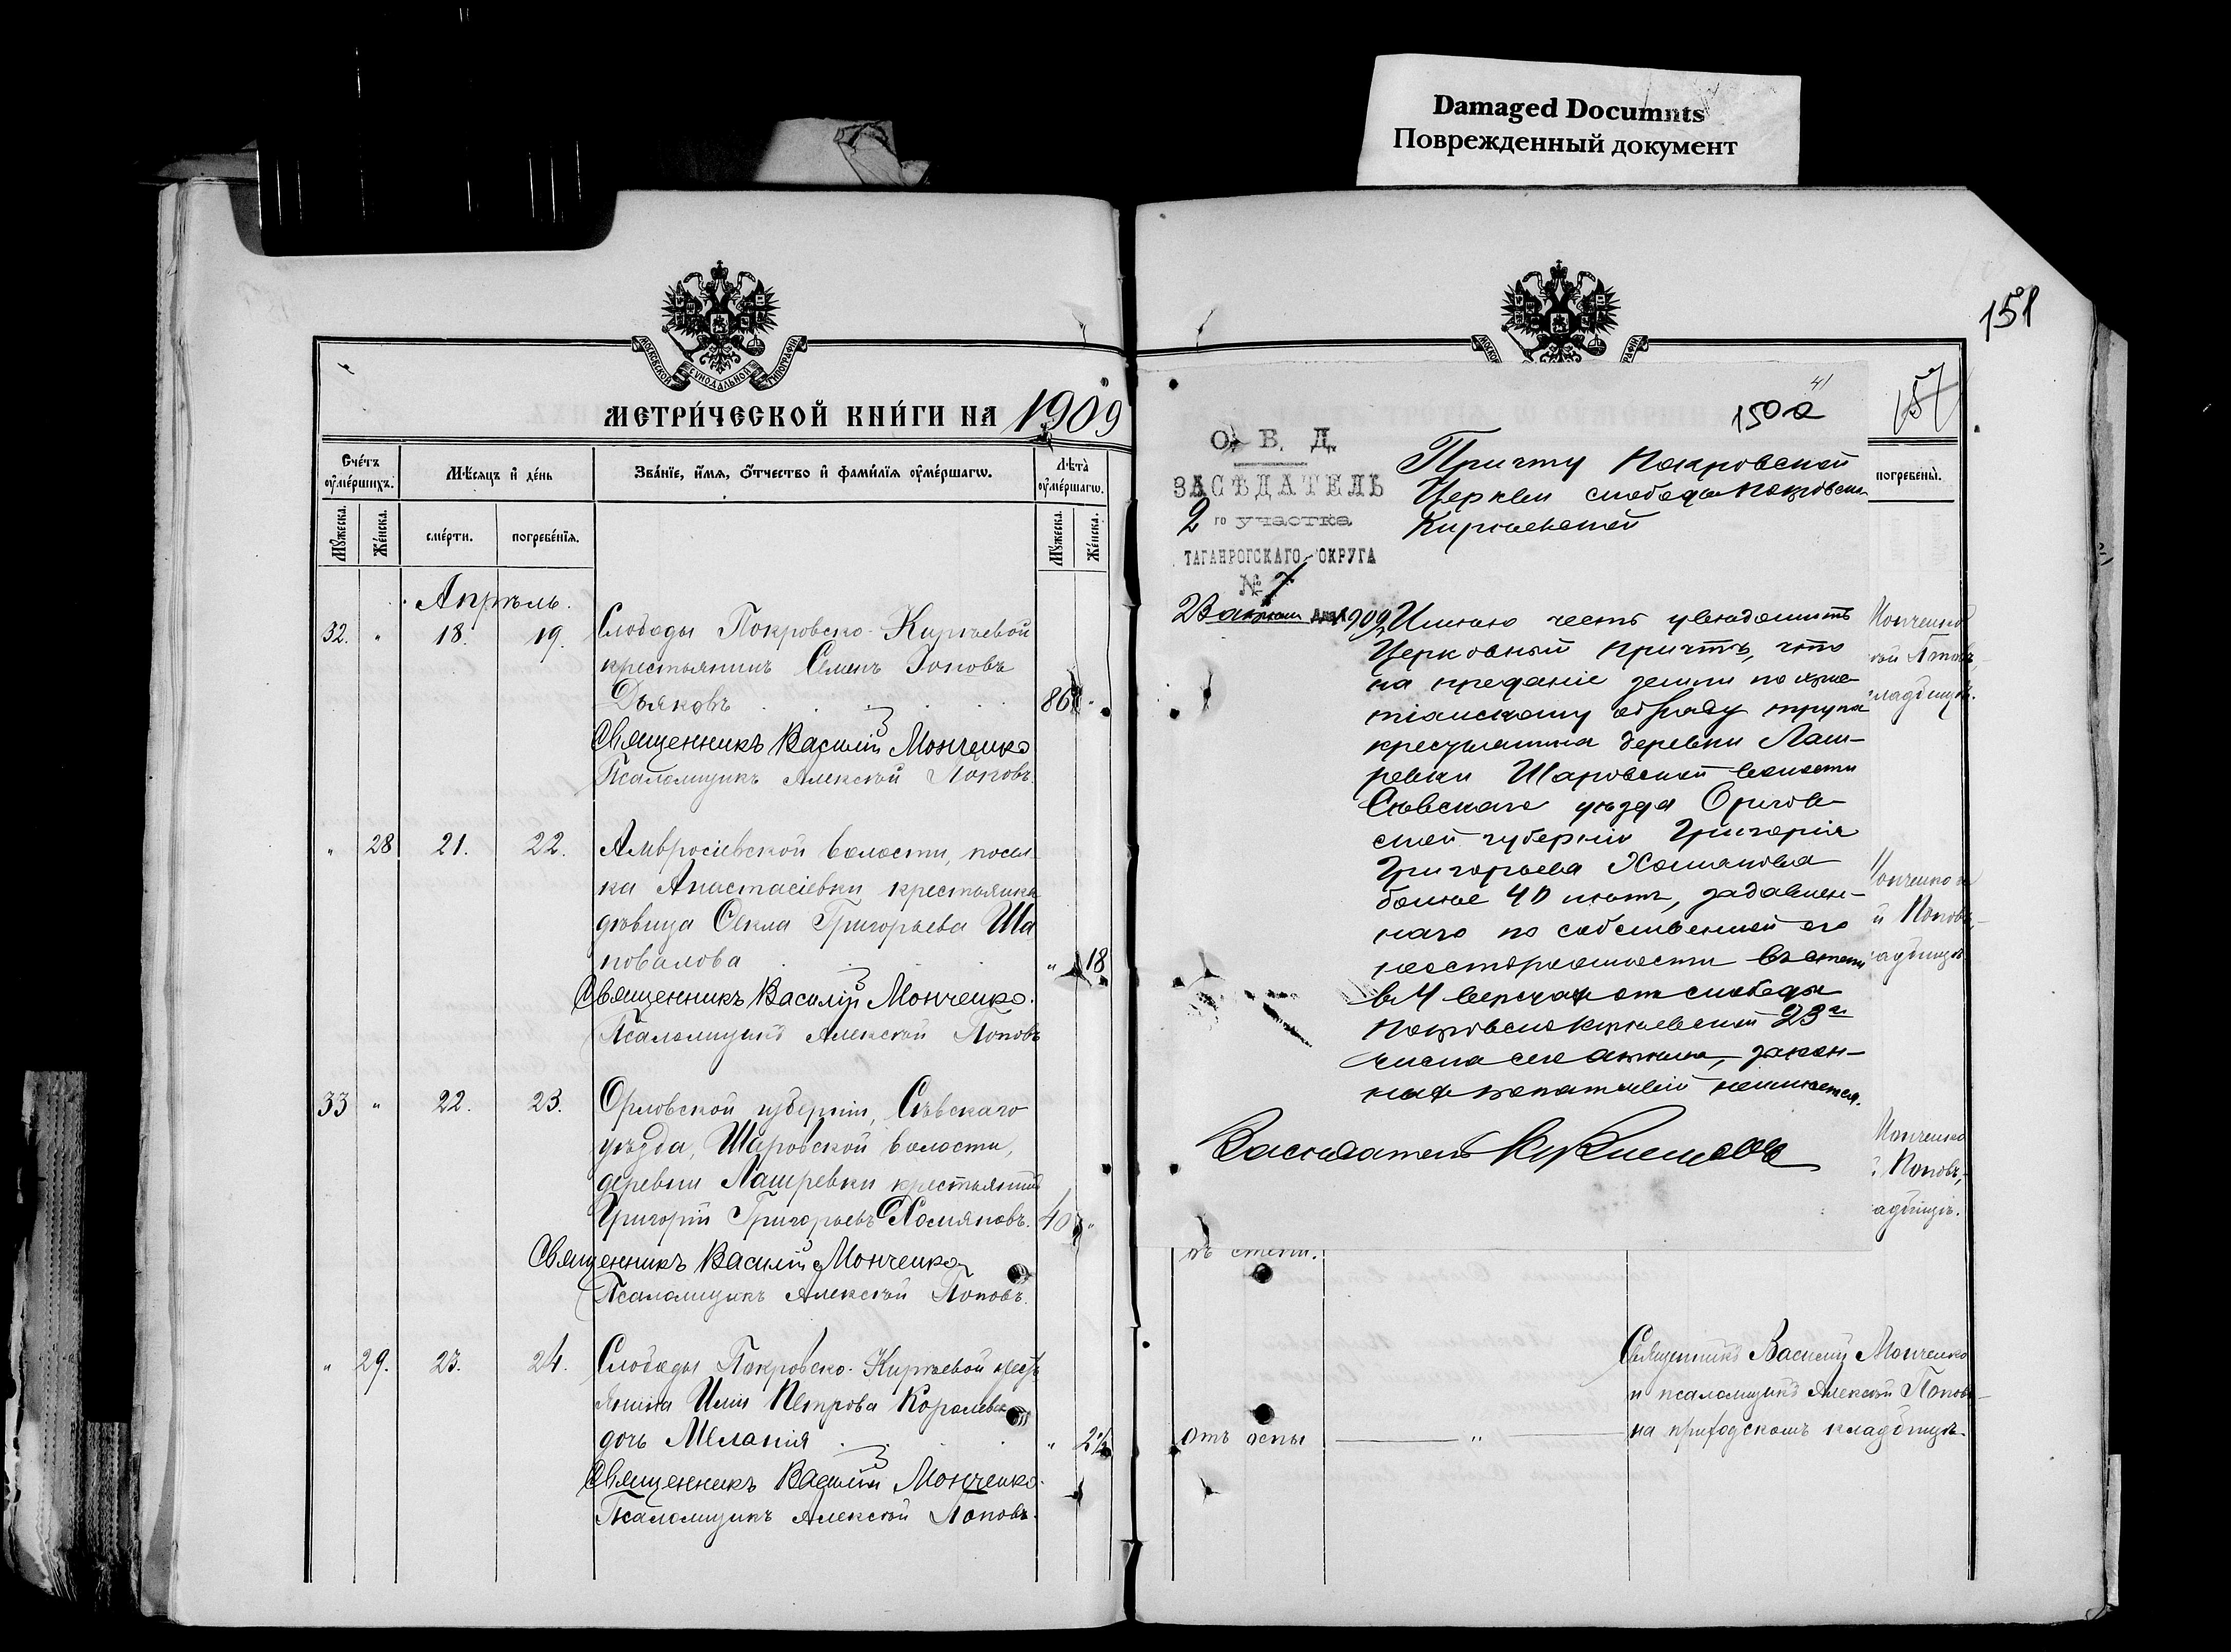 Damaged Documnts
Поврежденный документ
151
МОСКОВСКОЙ СУНОДАЛЬНОЙ ТИПОГРАФІИ
МЕТРИ́ЧЕСКОЙ КНИ́ГИ НА 1909
Счетъ оумершихъ.
Мѣсяцъ и день
Званіе, имя, отчество и фамилія оумершагѡ.
Лѣта оумершагѡ.
Мужеска.
Женска.
смерти.
погребенія.
Мужеска.
Женска.
Апрѣль.
32. " 18. 19. Слободы Покровско-Кирѣевой
крестьянинъ Семенъ Іоновъ
Дьяковъ 86 "
Священникъ Василій Монченко
Псаломщикъ Алексѣй Поповъ.
" 28 21. 22. Амвросіевской волости, посел
ка Анастасіевки крестьянка
дѣвица Ѳекла Григорьева Ша
повалова " 18
Священникъ Василій Монченко.
Псаломщикъ Алексѣй Поповъ
33 " 22. 23. Орловской губерніи, Сѣвскаго
уѣзда, Шаровской волости,
деревни Лашревки крестьянинъ
Григорій Григорьевъ Хомяковъ. 40 "
Священникъ Василій Монченко
Псаломщикъ Алексѣй Поповъ.
" 29. 23. 24. Слободы Покровско-Кирѣевой крест
янина Иліи Петрова Королева
дочь Меланія " 2½
Священникъ Василій Монченко.
Псаломщикъ Алексѣй Поповъ.
41
150а
157
О. В. Д.
ЗАСѢДАТЕЛЬ
2 го участка
ТАГАНРОГСКАГО ОКРУГА
№ 7
23 апрѣля 1909
Причту Покровской
Церкви слободы Покровско
Кирѣевской
Имѣю честь увѣдомить
Церковный Причтъ, что
на преданіе земли по хрис
тіанскому обряду трупа
крестьянина деревни Лаш-
ревки Шаровской волости
Сѣвскаго уѣзда Орлов-
ской губерніи Григорія
Григорьева Хомякова
болѣе 40 лѣтъ, задавлен-
наго по собственной его
неосторожности въ степи
в 4 верстах от слободы
Покровско Кирѣевской 23го
числа сего апрѣля, закон-
ных препятствій неимѣется.
Засѣдатель
погребены.
Монченко
ладбищѣ.
Монченко
й Поповъ,
адбищѣ
Монченко
Поповъ,
адбищѣ.
въ степи.
Священникъ Василій Монченко
и псаломщикъ Алексѣй Поповъ
Отъ оспы " на приходскомъ кладбищѣ